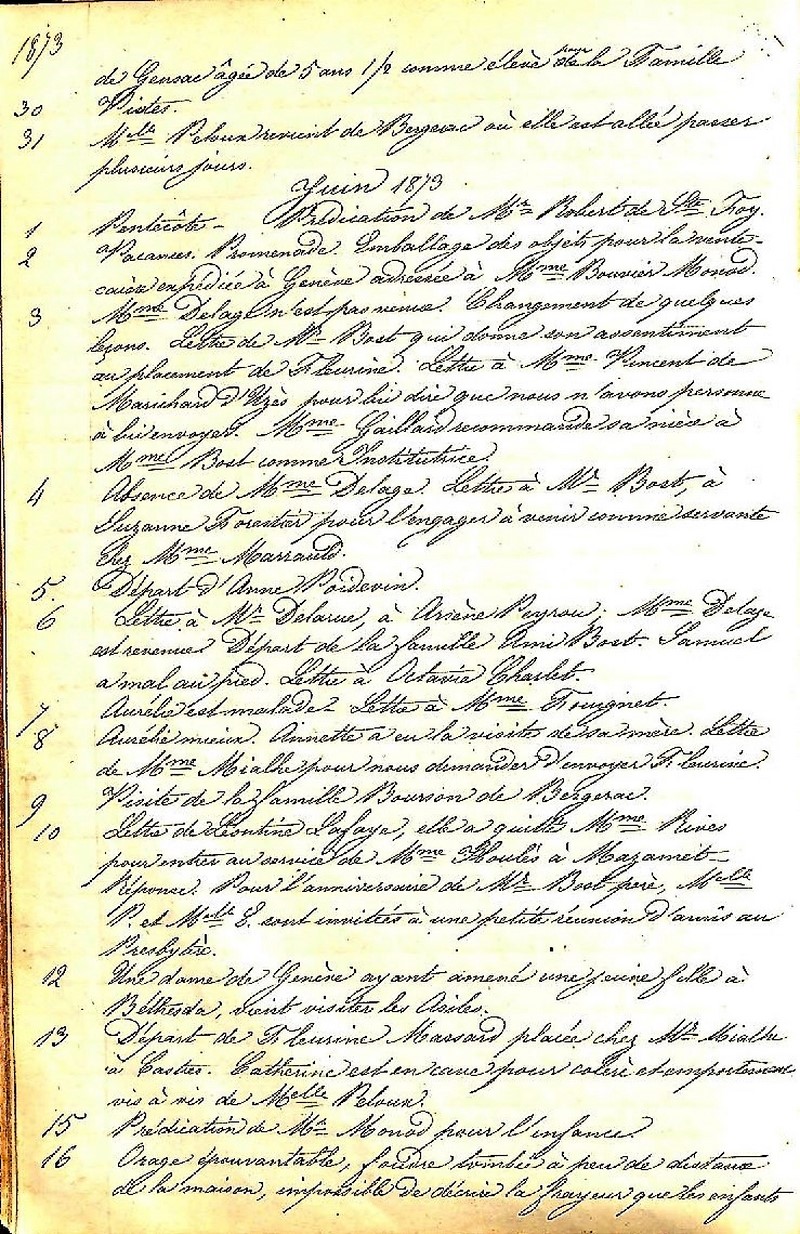 1873
de Gensac âgée de 5 ans 1/2 comme élève de la Famille
30 Pistes.
31 Melle Peloux revient de Bergerac où elle est allée passer
plusieurs jours.
Juin 1873
1 Pentecôte - Prédication de Mr Robert de Ste Foy.
2 Vacances. Promenade. Emballage des objets pour la vente -
caisse expédiée à Genève adressée à Mme Bouvier Monod.
3 Mme Delage n'est pas venue. Changement de quelques
leçons. Lettre de Mr Bost qui donne son assentiment
au placement de Fleurine. Lettre à Mme Vincent de
Marichard d'Uzès pour lui dire que nous n'avons personne
à lui envoyer. Mme Gaillard recommande sa nièce à
Mme Bost comme Institutrice.
4 Absence de Mme Delage. Lettre à Mr Bost, à
Suzanne Forestier pour l'engager à venir comme servante
chez Mme Marrauld.
5. Départ d'Anne Poidevin.
6 Lettre à Mr Delarue, à Arsène Peyrou. Mme Delage
est revenue. Départ de la famille Ami Bost. Samuel
a mal au pied. Lettre à Octavie Charlet.
7 Aurélie est malade - Lettre à Mme Fourgnet.
8 Aurélie mieux. Annette a eu la visite de sa mère. Lettre
de Mme Mialhe pour nous demander d'envoyer Fleurine.
9 Visite de la famille Bourson de Bergerac.
10 Lettre de Léontine Lafaye, elle a quitté Mme Rives
pour entrer au service de Mme Houlès à Mazamet -
Réponse. Pour l'anniversaire de Mr Bost père, Melle
P. et Melle E. sont invitées à une petite réunion d'amis au
Presbytère.
12 Une dame de Genève ayant amené une jeune fille à
Béthesda, vient visiter les Asiles.
13 Départ de Fleurine Massard placée chez Mr Mialhe
à Castres. Catherine est en cave pour colère et emportement
vis à vis de Melle Peloux.
15 Prédication de Mr Monod pour l'enfance.
16 Orage épouvantable, foudre tombée à peu de distance
de la maison, impossible de décrire la frayeur que les enfants